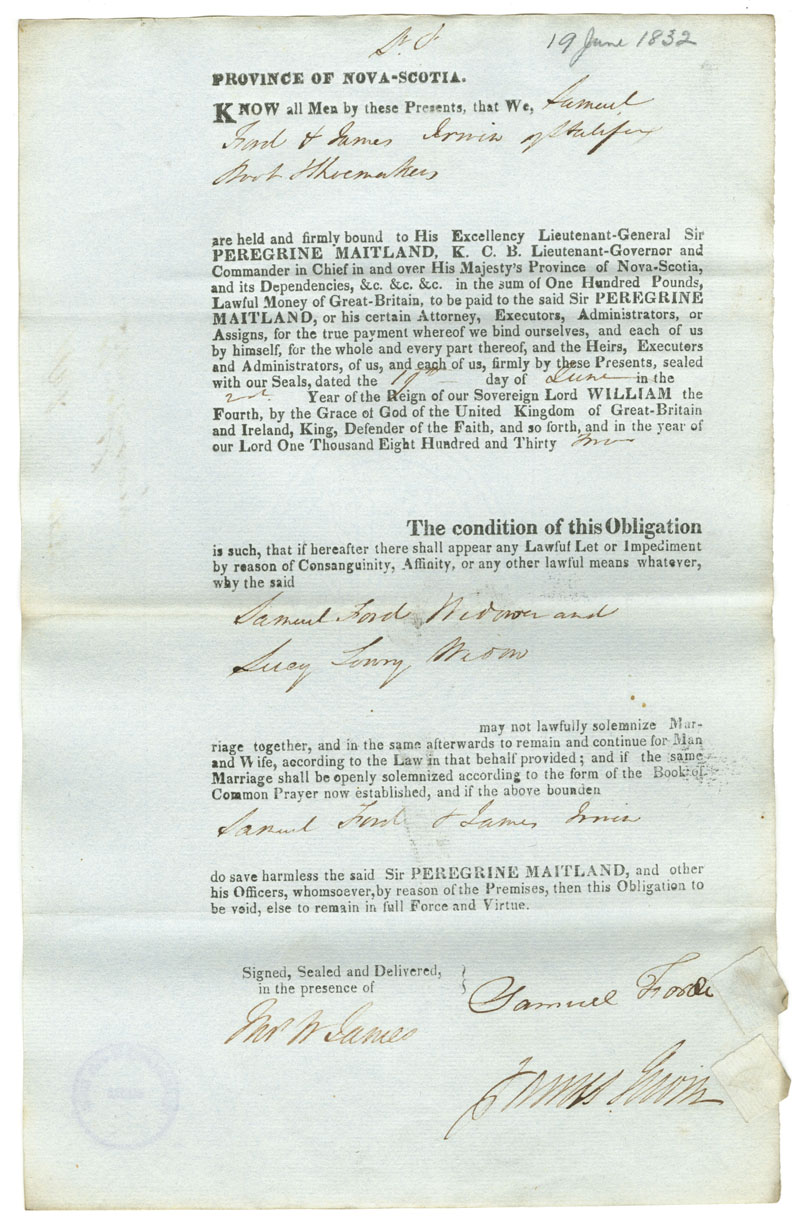 19 June 1832
PROVINCE OF NOVA-SCOTIA.
KNOW all Men by these Presents, that We, Samuel
Ford & James Irwin of Halifax
Boot & Shoemakers
are held and firmly bound to His Excellency Lieutenant-General Sir
PEREGRINE MAITLAND, K. C. B. Lieutenant-Governor and
Commander in Chief in and over His Majesty's Province of Nova-Scotia,
and its Dependencies, &c. &c. &c. in the sum of One Hundred Pounds,
Lawful Money of Great-Britain, to be paid to the said Sir PEREGRINE
MAITLAND, or his certain Attorney, Executors, Administrators, or
Assigns, for the true payment whereof we bind ourselves, and each of us
by himself, for the whole and every part thereof, and the Heirs, Executors
and Administrators, of us, and each of us, firmly by these Presents, sealed
with our Seals, dated the 19th day of June in the
2nd Year of the Reign of our Sovereign Lord WILLIAM the
Fourth, by the Grace of God of the United Kingdom of Great-Britain
and Ireland, King, Defender of the Faith, and so forth, and in the year of
our Lord One Thousand Eight Hundred and Thirty two
The condition of this Obligation
is such, that if hereafter there shall appear any Lawful Let or Impediment
by reason of Consanguinity, Affinity, or any other lawful means whatever,
why the said
Samuel Ford Widower and
Lucy Lowry Widow
may not lawfully solemnize Mar-
riage together, and in the same afterwards to remain and continue for Man
and Wife, according to the Law in that behalf provided; and if the same
Marriage shall be openly solemnized according to the form of the Book of
Common Prayer now established, and if the above bounden
Samuel Ford & James Irwin
do save harmless the said Sir PEREGRINE MAITLAND, and other
his Officers, whomsoever, by reason of the Premises, then this Obligation to
be void, else to remain in full Force and Virtue.
Signed, Sealed and Delivered,
in the presence of
Samuel Ford
Thos W James
James Irwin